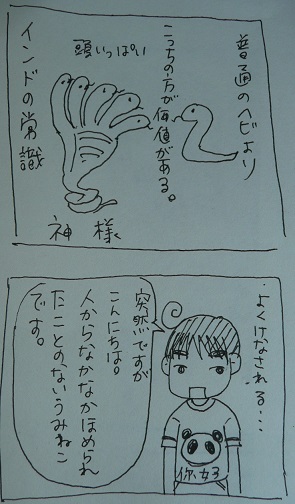 普通のヘビより
こっちの方が価値がある。
頭いっぱい
インドの常識
神様
よくけなされる…
突然ですが
こんにちは。
人からなかなかほめられ
たことのないうみねこ
です。
你好